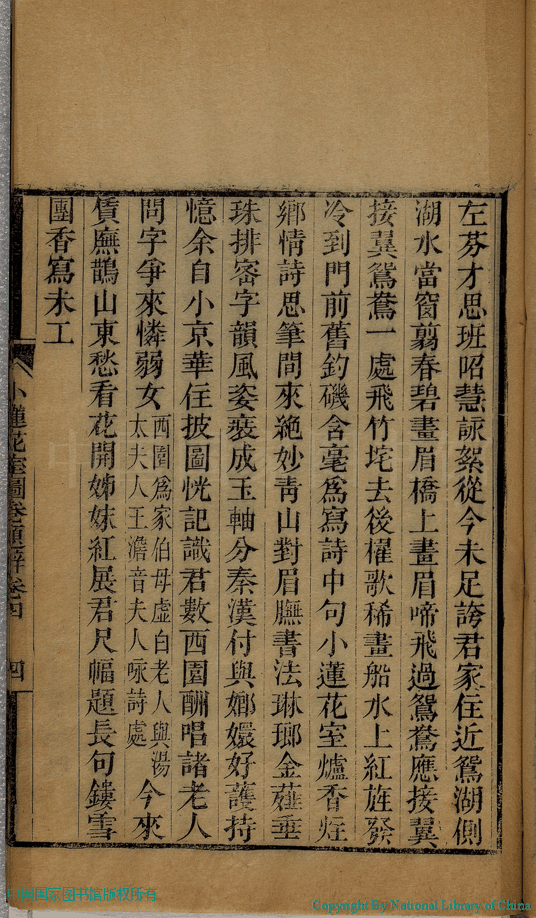 左芬才思班昭慧詠絮從今未足誇君家住近鴛湖側
湖水當窗翦春碧畫眉橋上畫眉啼飛過鴛鴦應接翼
接翼鴛鴦一處飛竹垞去後櫂歌稀畫船水上紅旌發
冷到門前舊釣磯含毫為寫詩中句小蓮花室爐香炷
鄉情詩思筆間來絶妙青山對眉嫵書法琳瑯金薤垂
珠排密字韻風姿裝成玉軸分秦漢付與嫏嬛好護持
憶余自小京華住披圖恍記識君數西園酬唱諸老人
問字爭來憐弱女西園為家伯母虛白老人與湯太夫人王澹音夫人咏詩處今來
賃廡鵲山東愁看花開姊妹紅展君尺幅題長句鏤雪
團香寫未工
小蓮花室圖卷題辭卷四 四
中國国家图书馆版权所有
Copyright By National Library of China